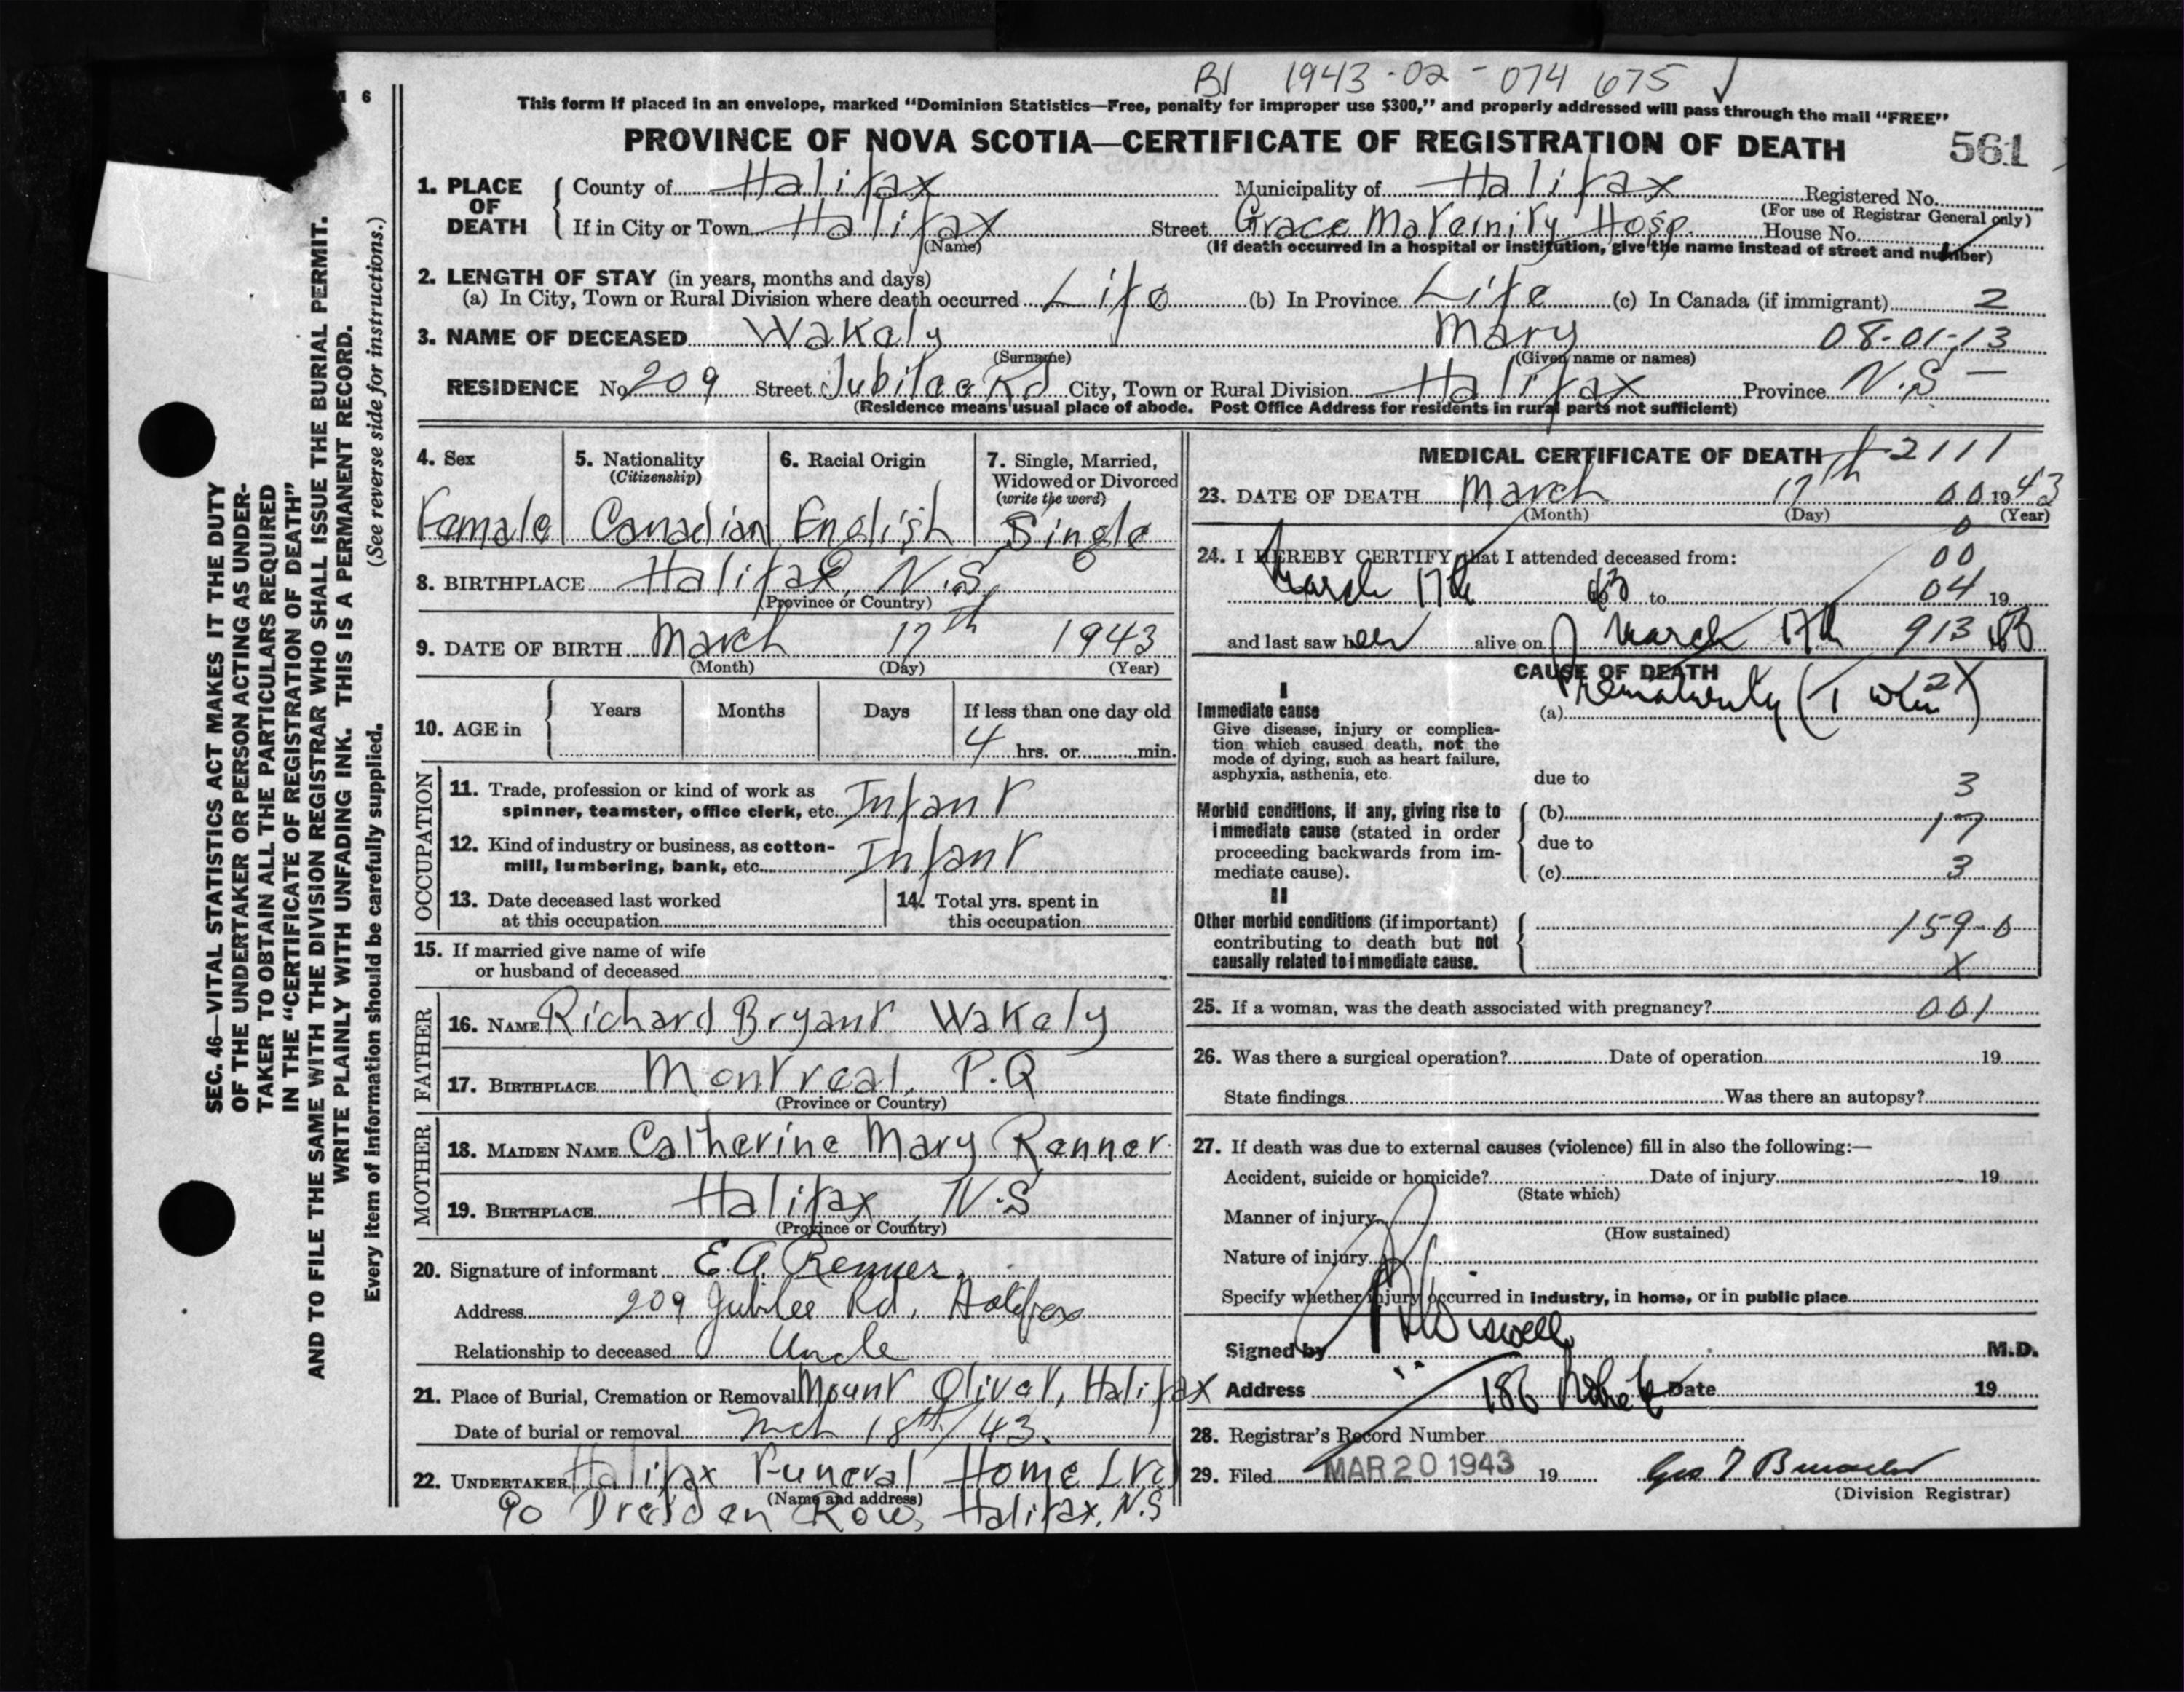 BI 1943-02-074675 ✓
6
This form if placed in an envelope, marked "Dominion Statistics—Free, penalty for improper use $300," and properly addressed will pass through the mail "FREE"
PROVINCE OF NOVA SCOTIA—CERTIFICATE OF REGISTRATION OF DEATH 561
SEC. 46—VITAL STATISTICS ACT MAKES IT THE DUTY
OF THE UNDERTAKER OR PERSON ACTING AS UNDER-
TAKER TO OBTAIN ALL THE PARTICULARS REQUIRED
IN THE "CERTIFICATE OF REGISTRATION OF DEATH"
AND TO FILE THE SAME WITH THE DIVISION REGISTRAR WHO SHALL ISSUE THE BURIAL PERMIT.
WRITE PLAINLY WITH UNFADING INK. THIS IS A PERMANENT RECORD.
Every item of information should be carefully supplied. (See reverse side for instructions.)
1. PLACE OF DEATH
County of Halifax Municipality of Halifax Registered No.
(For use of Registrar General only)
If in City or Town Halifax Street Grace Maternity Hosp. House No.
(Name) (If death occurred in a hospital or institution, give the name instead of street and number)
2. LENGTH OF STAY (in years, months and days)
(a) In City, Town or Rural Division where death occurred Life (b) In Province Life (c) In Canada (if immigrant) 2
3. NAME OF DECEASED Wakely Mary 08-01-13
(Surname) (Given name or names)
RESIDENCE No. 209 Street Jubilee Rd City, Town or Rural Division Halifax Province N.S-
(Residence means usual place of abode. Post Office Address for residents in rural parts not sufficient)
4. Sex
Female
5. Nationality
(Citizenship)
Canadian
6. Racial Origin
English
7. Single, Married,
Widowed or Divorced
(write the word)
Single
8. BIRTHPLACE Halifax, N.S.
(Province or Country)
9. DATE OF BIRTH March 17th 1943
(Month) (Day) (Year)
10. AGE in
Years Months Days If less than one day old
4 hrs. or min.
OCCUPATION
11. Trade, profession or kind of work as
spinner, teamster, office clerk, etc. Infant
12. Kind of industry or business, as cotton-
mill, lumbering, bank, etc. Infant
13. Date deceased last worked
at this occupation
14. Total yrs. spent in
this occupation
15. If married give name of wife
or husband of deceased
FATHER
16. NAME Richard Bryant Wakely
17. BIRTHPLACE Montreal, P.Q
(Province or Country)
MOTHER
18. MAIDEN NAME Catherine Mary Renner
19. BIRTHPLACE Halifax, N.S
(Province or Country)
20. Signature of informant E.A. Renner
Address 209 Jubilee Rd, Halifax
Relationship to deceased Uncle
21. Place of Burial, Cremation or Removal Mount Olivet, Halifax
Date of burial or removal Mch 18th/43.
22. UNDERTAKER Halifax Funeral Home Ltd
(Name and address)
90 Dresden Row, Halifax, N.S
MEDICAL CERTIFICATE OF DEATH 2111
23. DATE OF DEATH March 17th 00 1943
(Month) (Day) (Year)
0
24. I HEREBY CERTIFY that I attended deceased from: 00
March 17th 43 to 04 19
and last saw her alive on March 17th 913 43
CAUSE OF DEATH
I
Immediate cause
Give disease, injury or complica-
tion which caused death, not the
mode of dying, such as heart failure,
asphyxia, asthenia, etc.
(a) Prematurity (Twin) 2X
due to 3
Morbid conditions, if any, giving rise to
immediate cause (stated in order
proceeding backwards from im-
mediate cause).
(b)
17
due to
(c) 3
II
Other morbid conditions (if important)
contributing to death but not
causally related to immediate cause.
159-0
X
25. If a woman, was the death associated with pregnancy? 001
26. Was there a surgical operation? Date of operation 19
State findings Was there an autopsy?
27. If death was due to external causes (violence) fill in also the following:—
Accident, suicide or homicide? Date of injury 19
(State which)
Manner of injury
(How sustained)
Nature of injury
Specify whether injury occurred in industry, in home, or in public place
Signed by Wiswell M.D.
Address 186 Date 19
28. Registrar's Record Number
29. Filed MAR 20 1943 19
(Division Registrar)